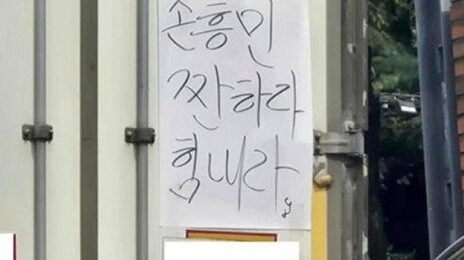 손흥민
짠하라
힘내라